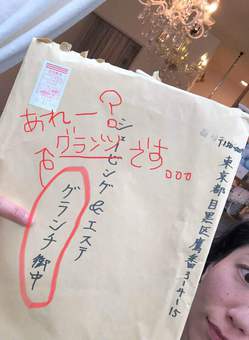 東京都目黒区鷹番3-4-15
シェービング&エステ
グランチ御中
あれー?
グランツです。。。